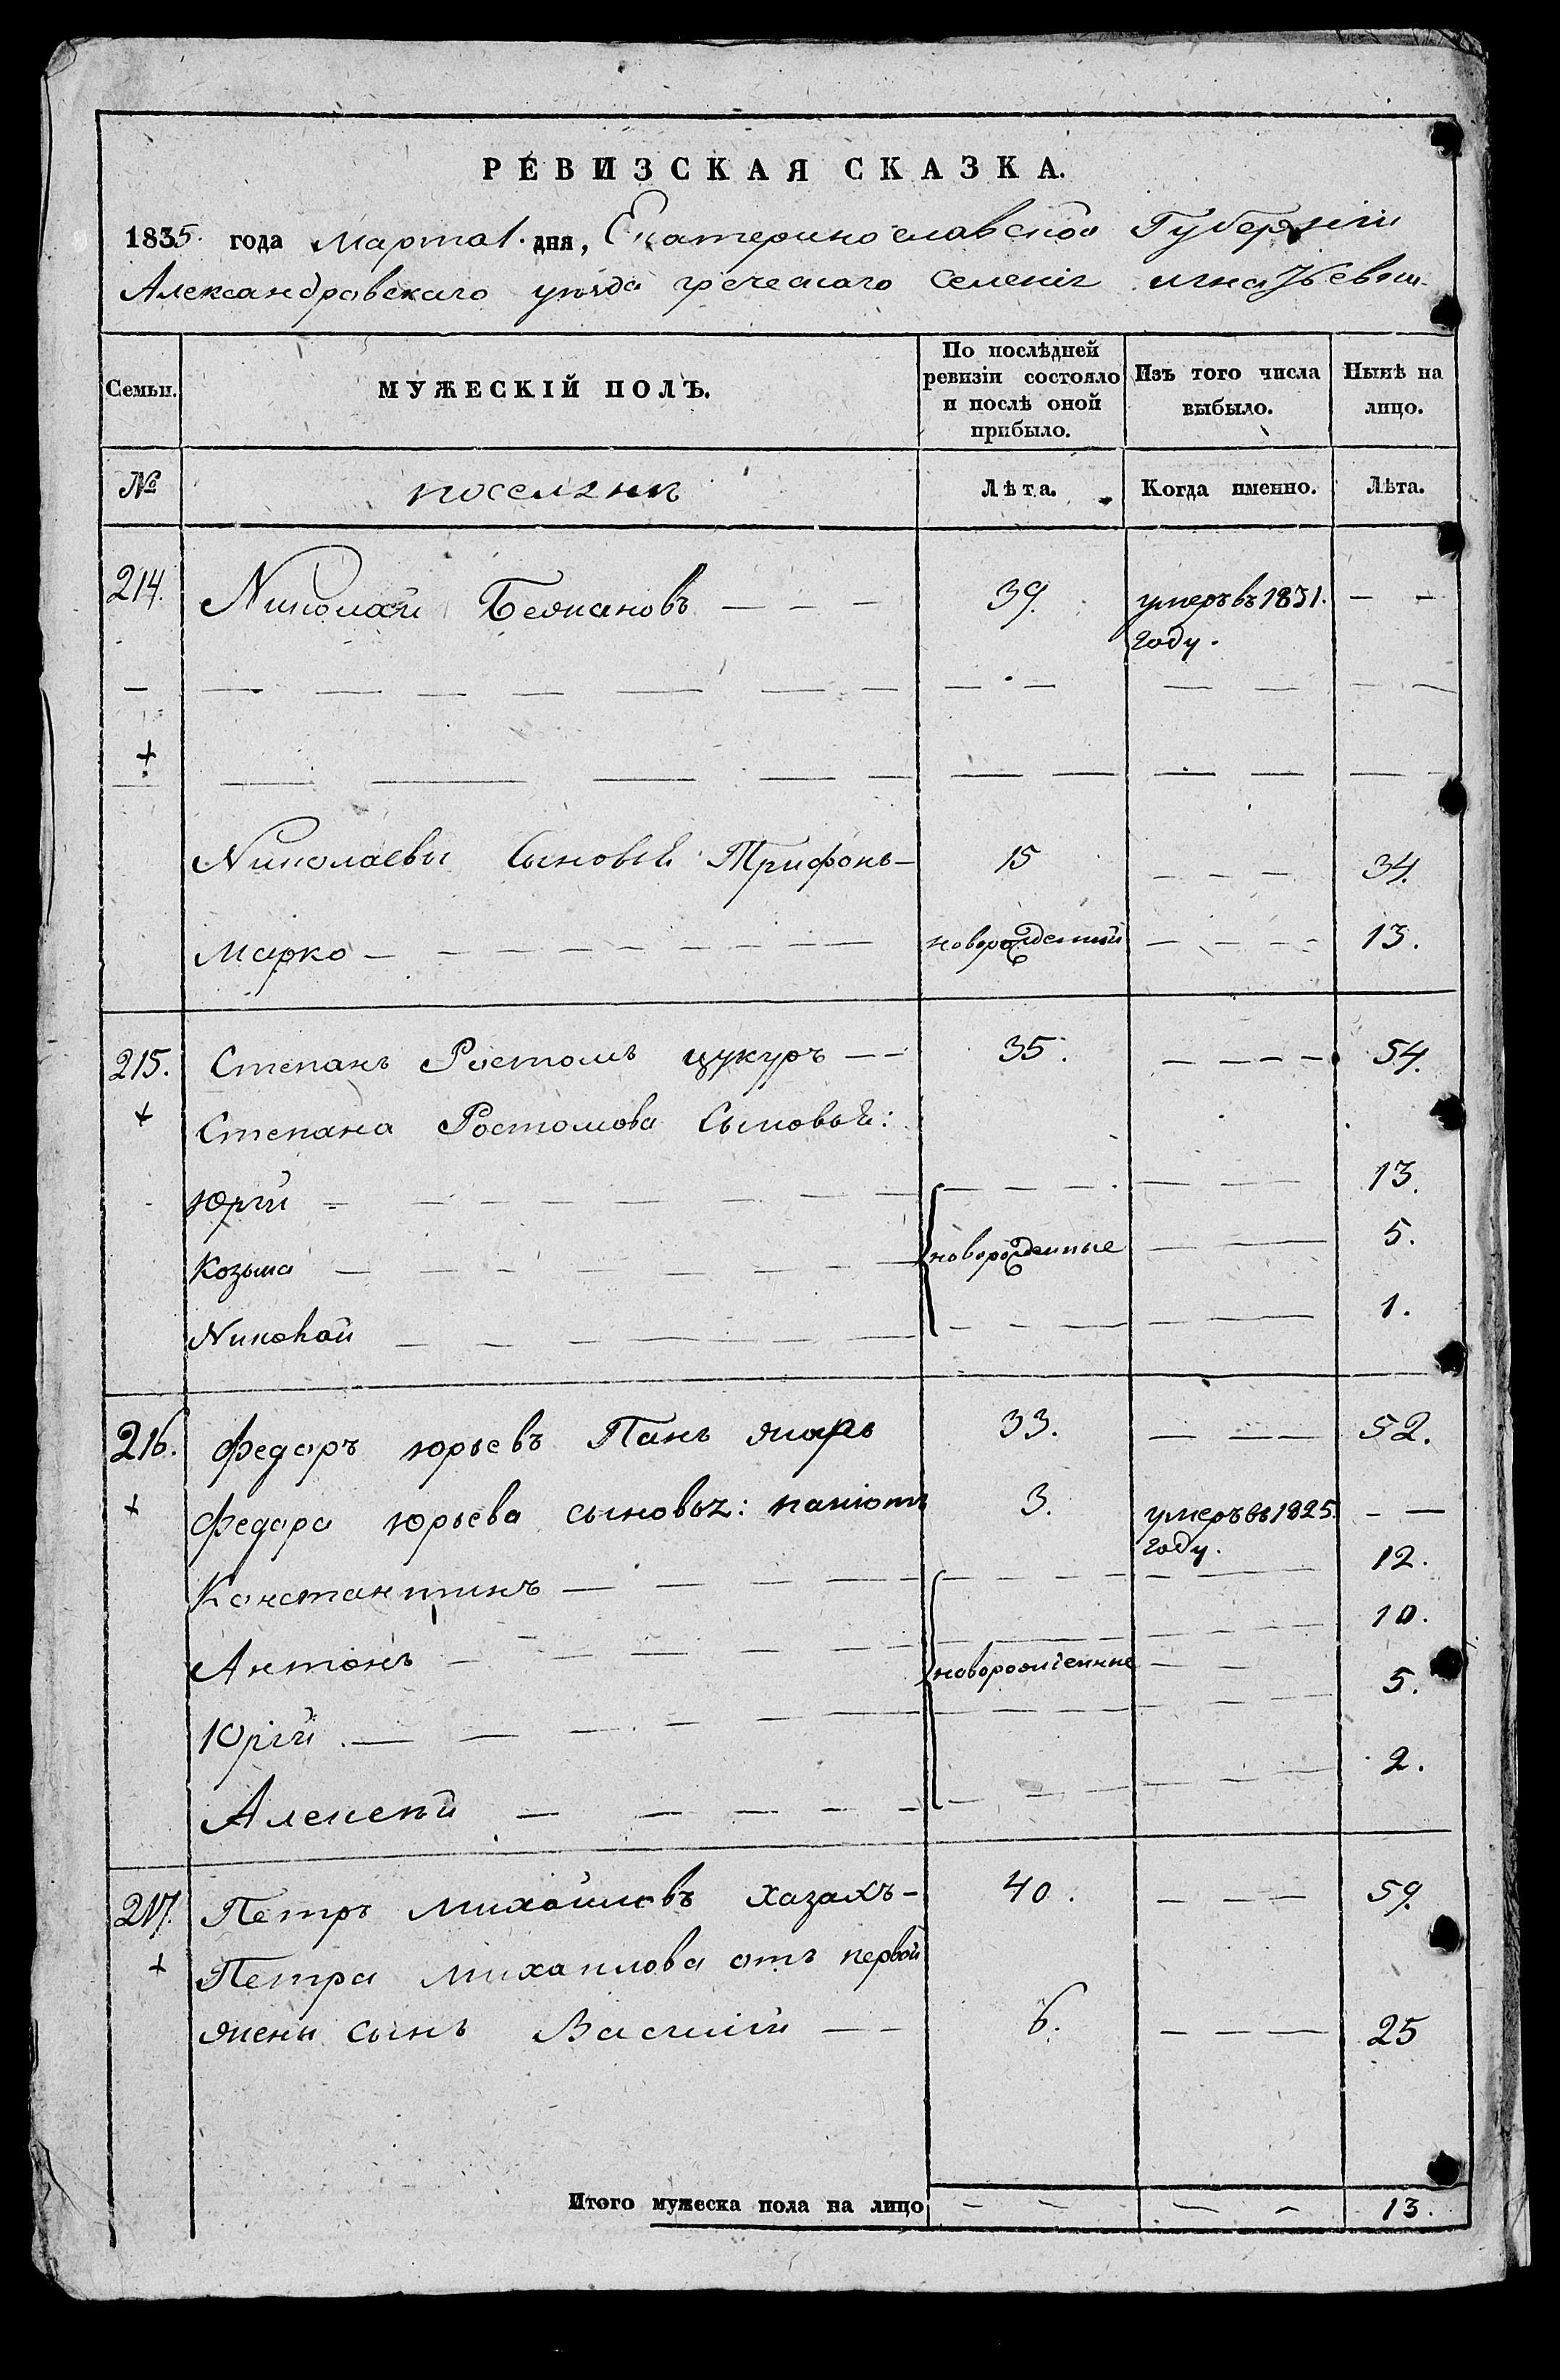 РЕВИЗСКАЯ СКАЗКА.
1835. года Марта 1. дня, Екатеринославской Губерніи
Александровскаго уезда греческаго Селенія
Семьи. МУЖЕСКІЙ ПОЛЪ. По послѣдней ревизіи состояло и послѣ оной прибыло. Изъ того числа выбыло. Нынѣ на лицо.
№ поселяне Лѣта. Когда именно. Лѣта.
214. Николай 39. умеръ въ 1831. — —
году.
Николаевы Сыновья Трифонъ — 15 — — — 34.
Марко — новорожденный — — — — 13.
215. Степанъ Ростомъ цукуръ — — 35. — — — — 54.
Степана Ростомова Сыновья:
Юрій — — — — 13.
Козьма — новорожденные — — 5.
Николай — — — — 1.
216. Федоръ юрьевъ Панъ 33. — — — 52.
Федора юрьева сыновья: паніотъ 3. умеръ въ 1825. — —
году.
Константинъ — — — — 12.
Антонъ — — — — 10.
новорожденные
Юрій. — — — — 5.
Алексей — — — — 2.
217. Петръ Михайловъ Хазахъ — 40. — — — 59.
Петра Михаилова отъ первой
жены сынъ Василій — — 6. — — — 25
Итого мужеска пола на лицо — — — — 13.